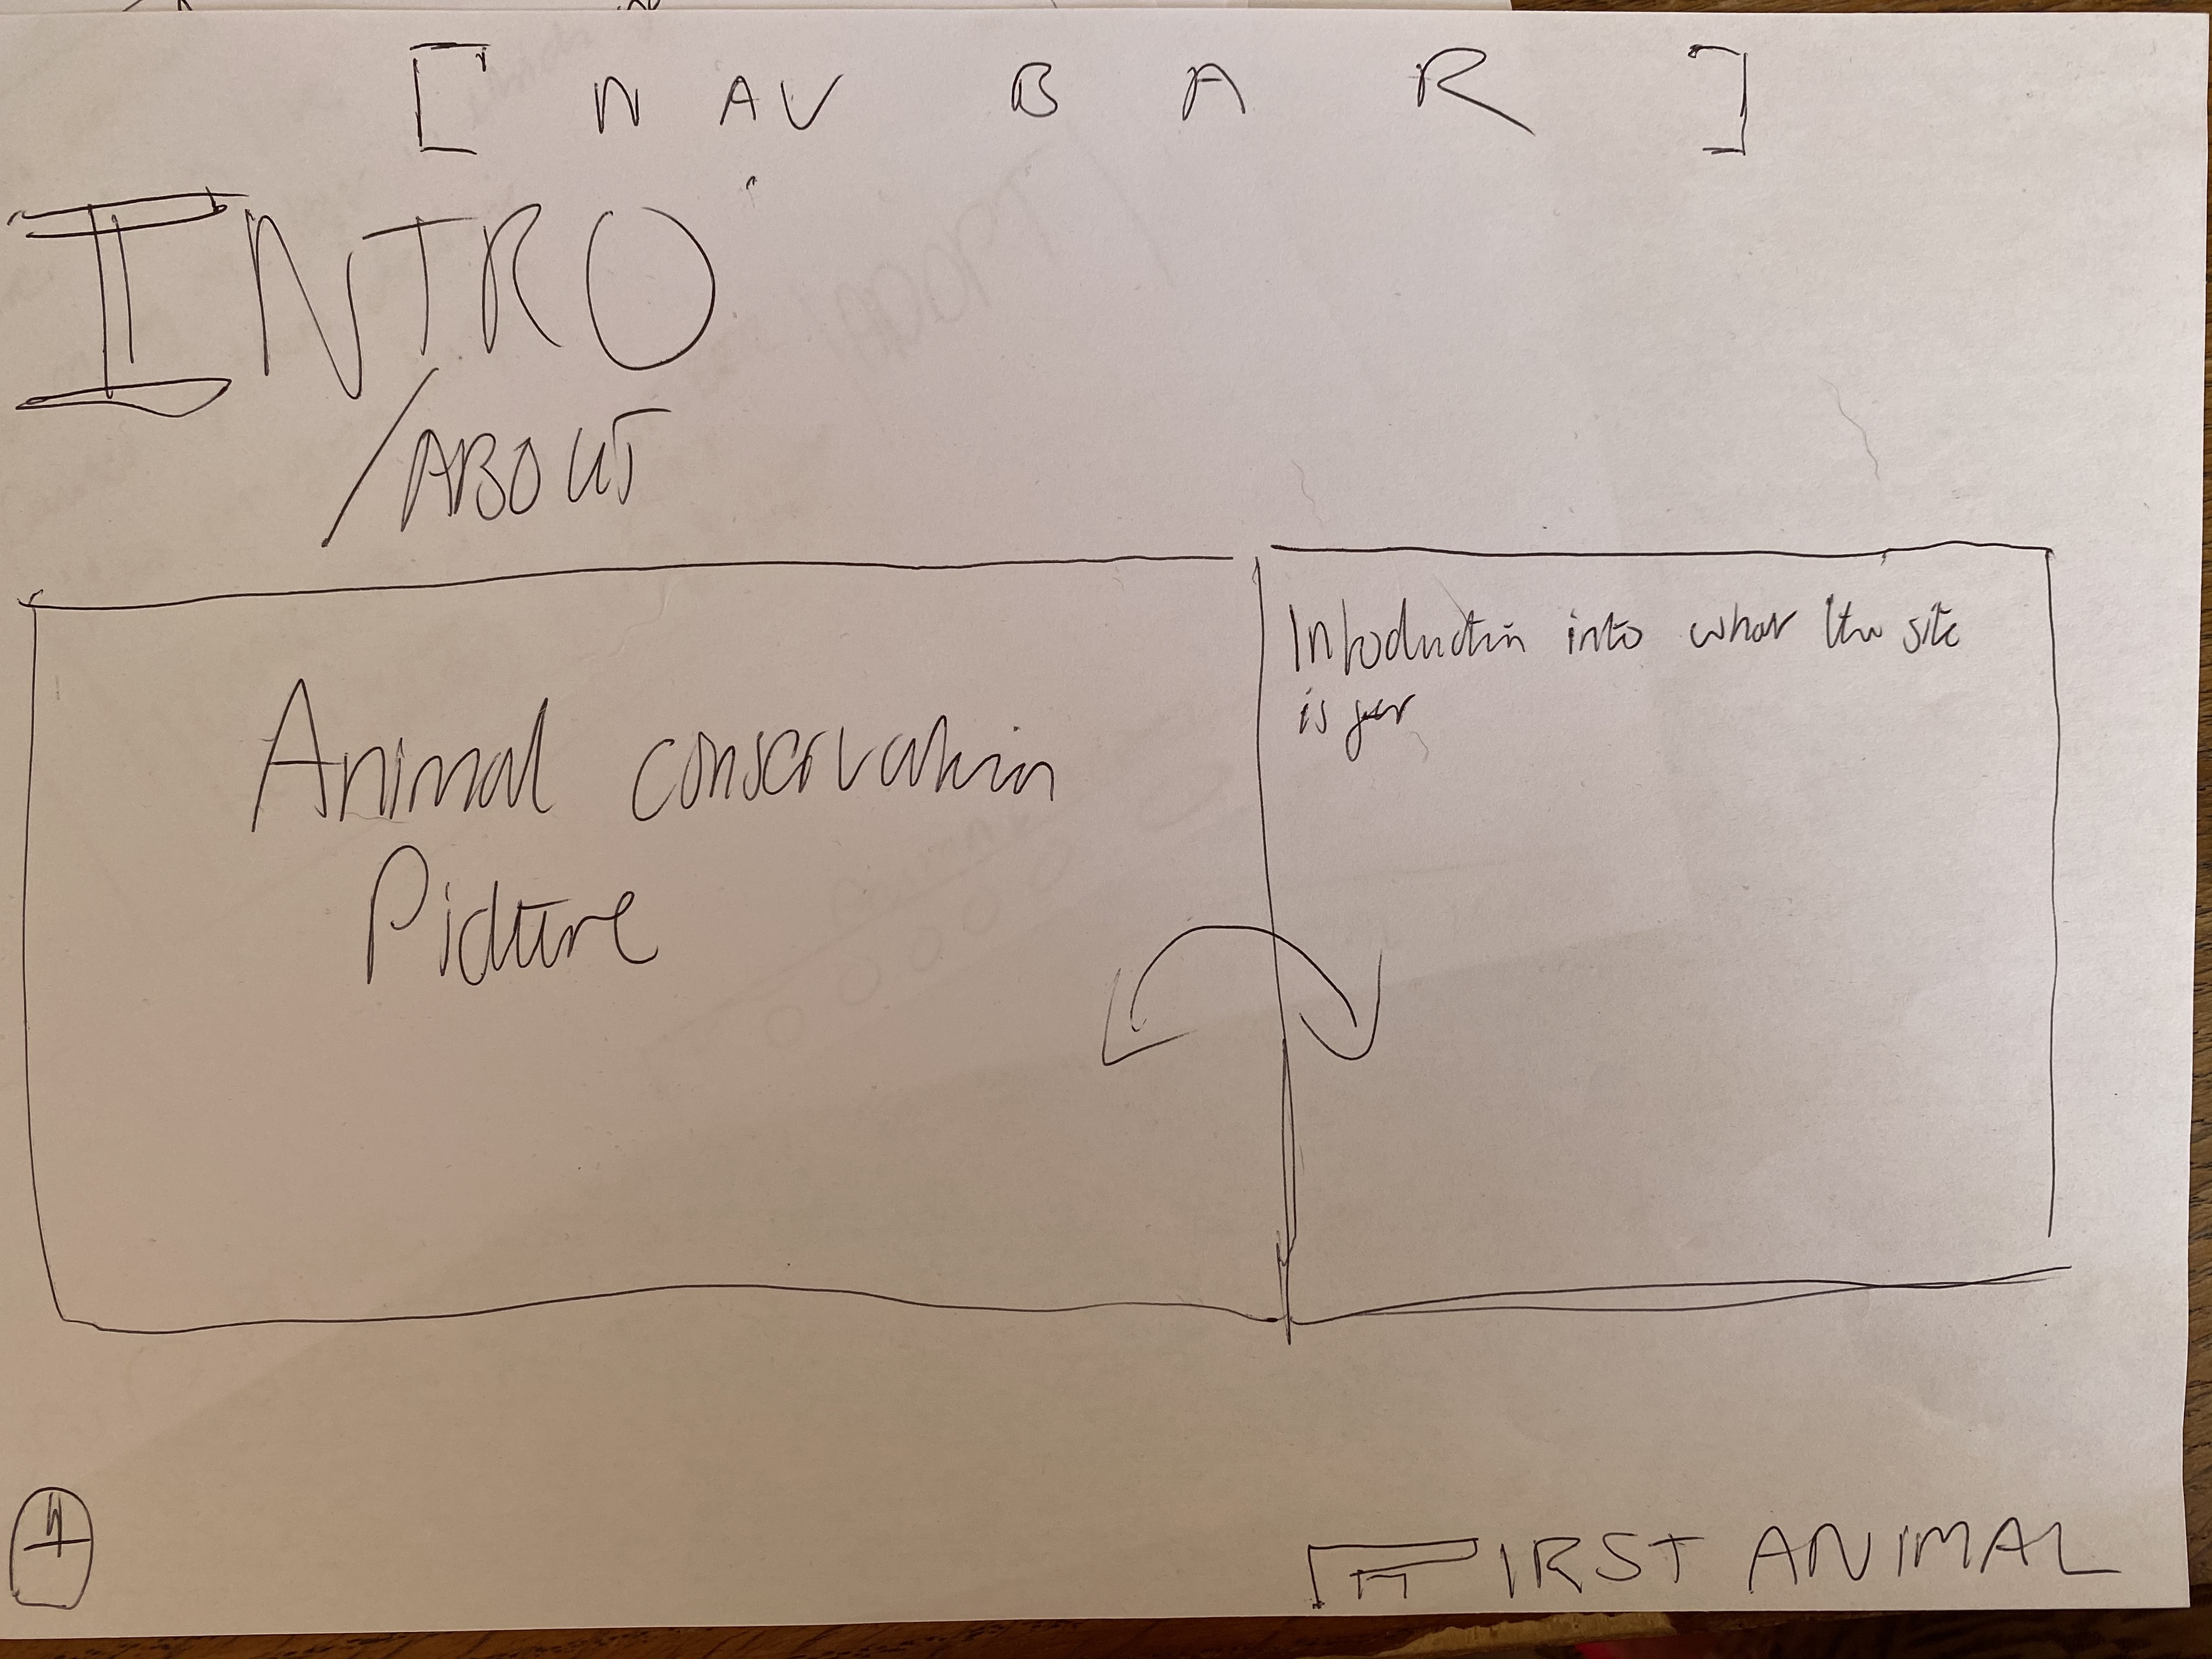 [ NAV BAR ]
INTRO
/ABOUT
Animal conservation
Picture
Introduction into what the site
is for
FIRST ANIMAL